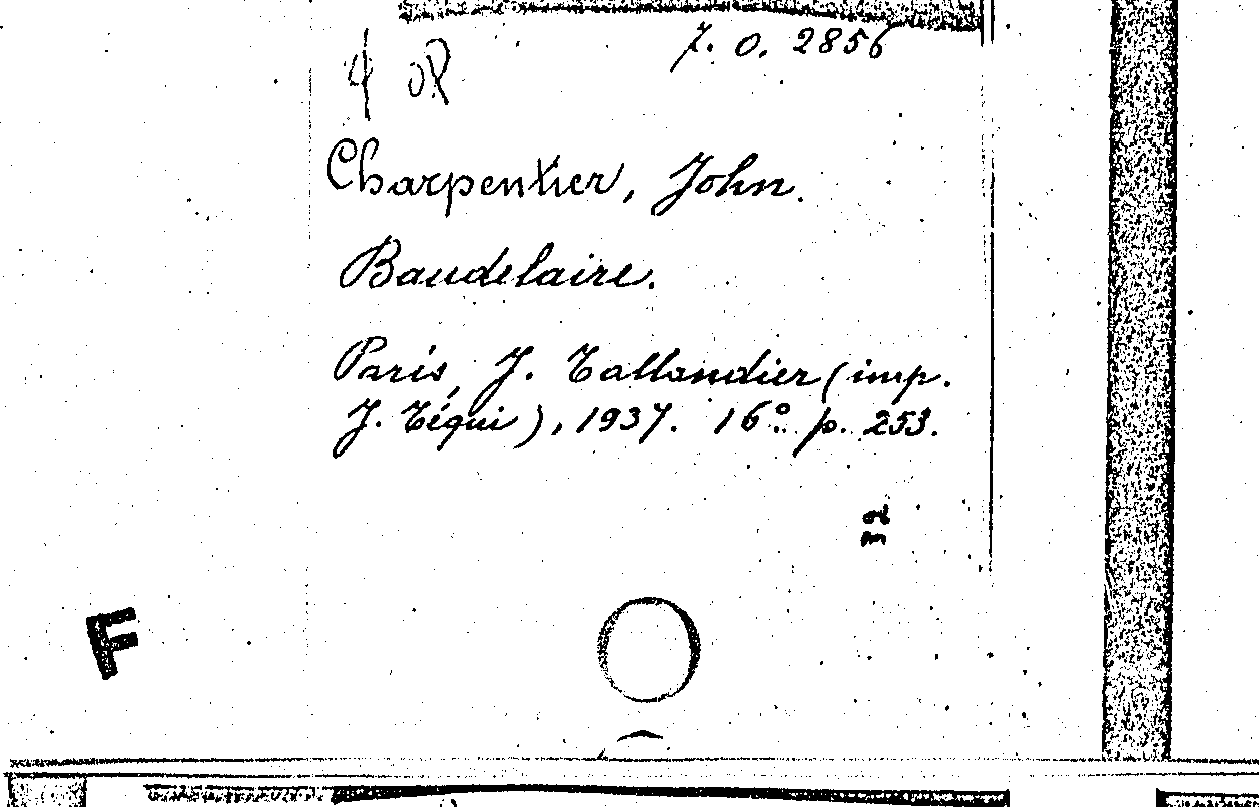 7. O. 2856
Charpentier, John.
Baudelaire.
Paris, J. Tallandier (imp.
J. Téqui), 1937. 16° p. 253.
F